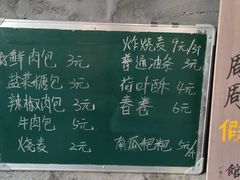 鲜肉包 3元
盐菜糖包 3元
辣椒肉包 3元
牛肉包 5元
烧麦 2元
炸烧麦 9元/
普通油条 3元
荷叶酥 4元
春卷 6元
南瓜粑粑 5元/
周
假